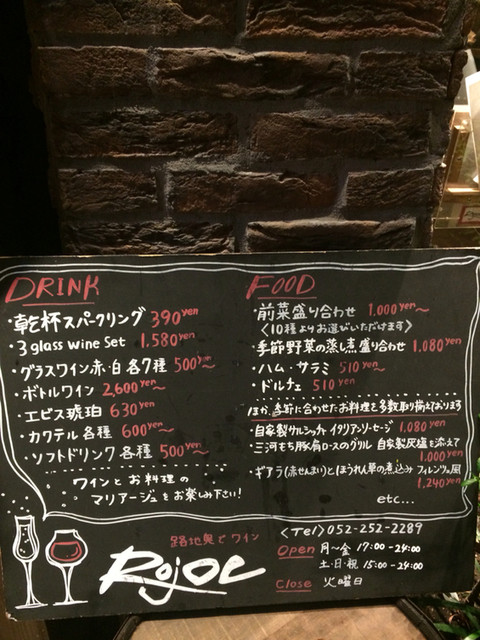 DRINK
・乾杯スパークリング 390yen
・3 glass wine Set 1.580yen
・グラスワイン赤・白 各7種 500yen〜
・ボトルワイン 2,600yen〜
・エビス琥珀 630yen
・カクテル各種 600yen〜
・ソフトドリンク各種 500yen〜
ワインとお料理の
マリアージュをお楽しみ下さい!
FOOD
・前菜盛り合わせ 1.000yen〜
〈10種よりお選びいただけます〉
・季節野菜の蒸し煮盛り合わせ 1.080yen
・ハム・サラミ 510yen〜
・ドルチェ 510yen
ほか、季節に合わせたお料理を多数取り揃えております
・自家製サルシッチャ イタリアソーセージ 1,080yen
・三河もち豚肩ロースのグリル 自家製灰塩を添えて
1.000yen
・ギアラ(赤せんまい)とほうれん草の煮込み フィレンツェ風
1,240yen
etc...
路地奥でワイン
Rojoc
〈Tel〉052-252-2289
Open 月〜金 17:00-24:00
土・日・祝 15:00-24:00
Close 火曜日